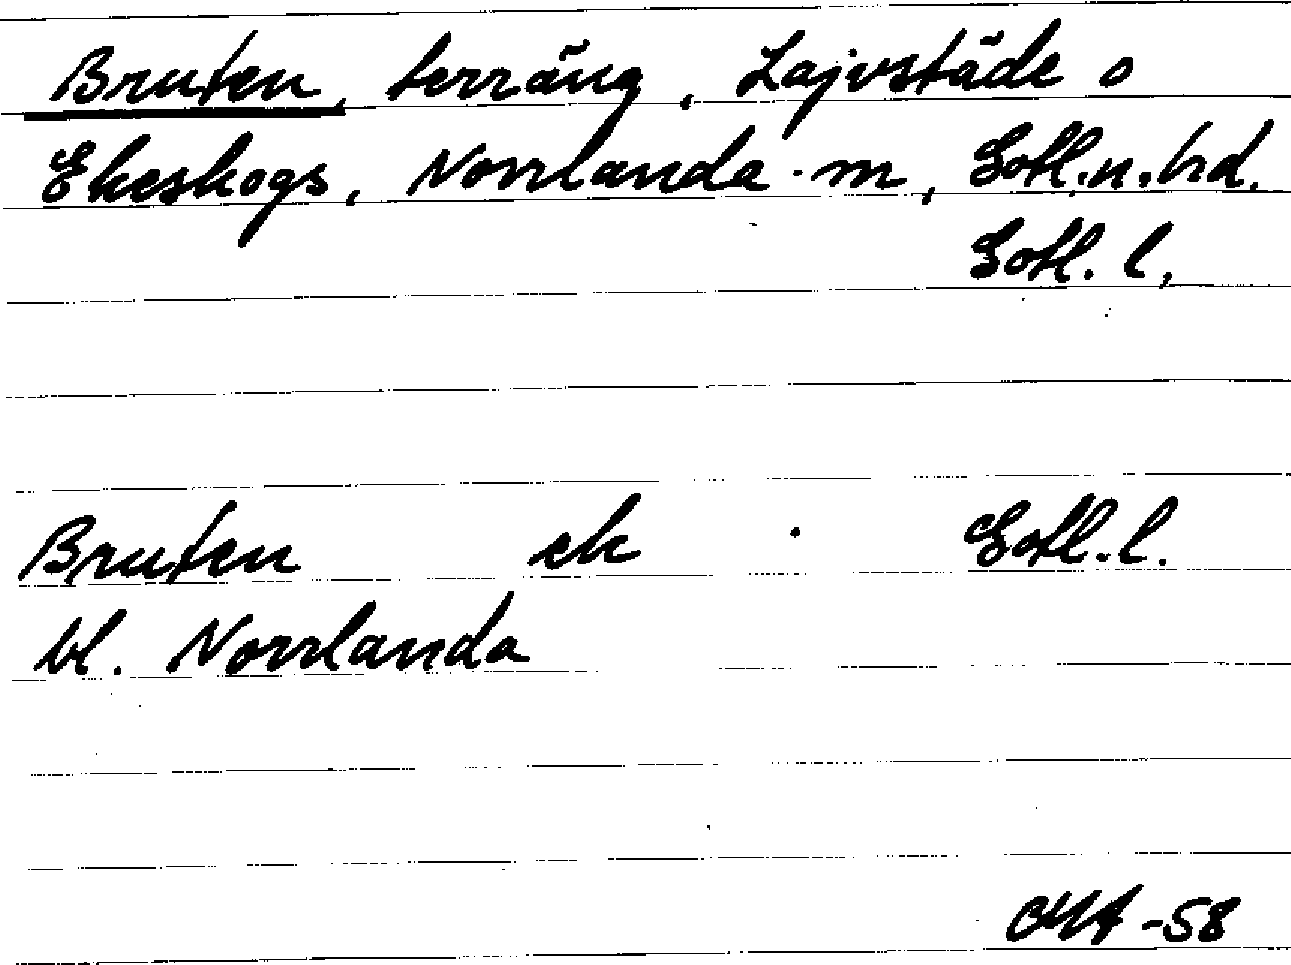 Bruten, terräng, Lajvstäde o
Ekeskogs, Norrlanda m, Gotl.n.hd.
Gotl. l,
Bruten ek Gotl.l.
bl. Norrlanda
-58